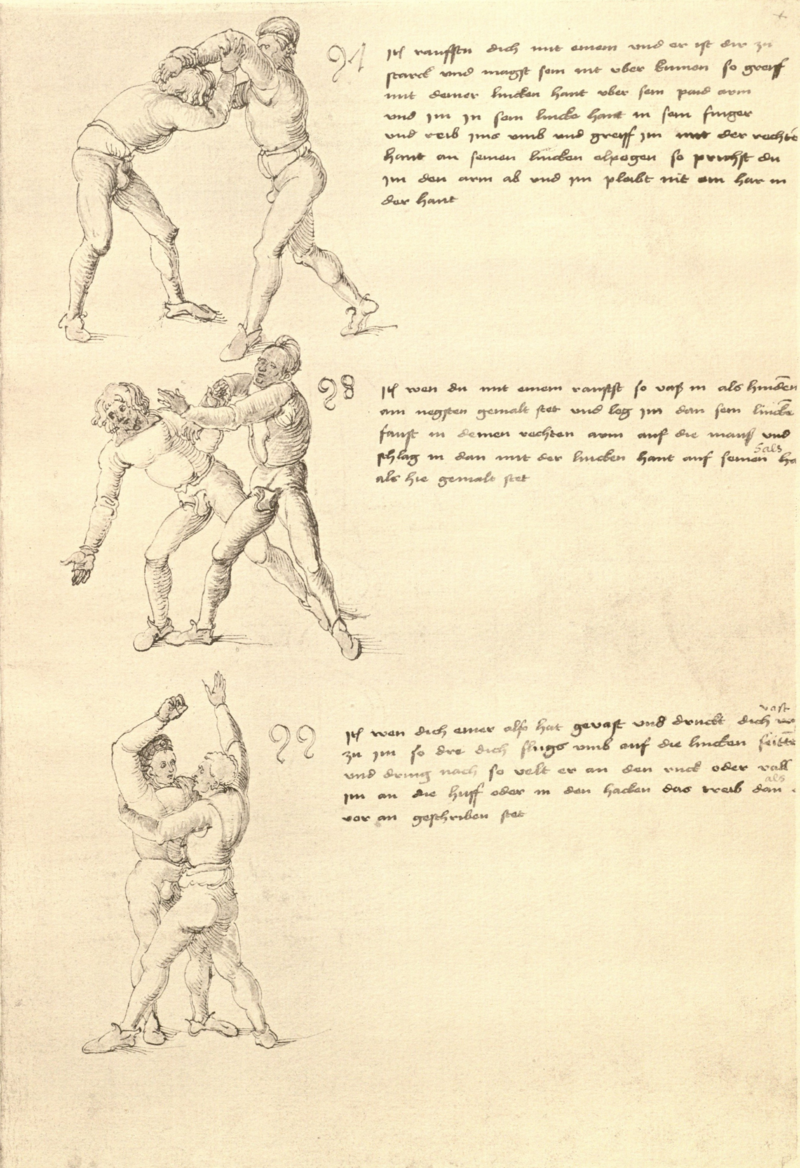 97
Itꝭ rauffstu dich mit einem vnd er ist dir zu
starck vnd magst sein nit vber kumen so greiff
mit deiner lincken hant vber sein paid arm
vnd im in sein lincke hant in sein finger
vnd reib ims vmb vnd greiff im mit der rechtē
hant an seinen lincken elpogen so prichst du
im den arm ab vnd im pleibt nit ein har in
der hant
98
Itꝭ wen du mit einem raufst so vaß in als hinden
am negsten gemalt stet vnd leg im dan sein lincke
faust in deinen rechten arm auf die mauß vnd
schlag in dan mit der lincken hant auf seinen hals
als hie gemalt stet
99
Itꝭ wen dich einer also hat gevast vnd druckt dich vast
zu im so dre dich flugs vmb auf die lincken seidtē
vnd dring nach so velt er an den ruck oder vall
im an die huff oder in den hacken das treib dan als
vor an geschriben stet